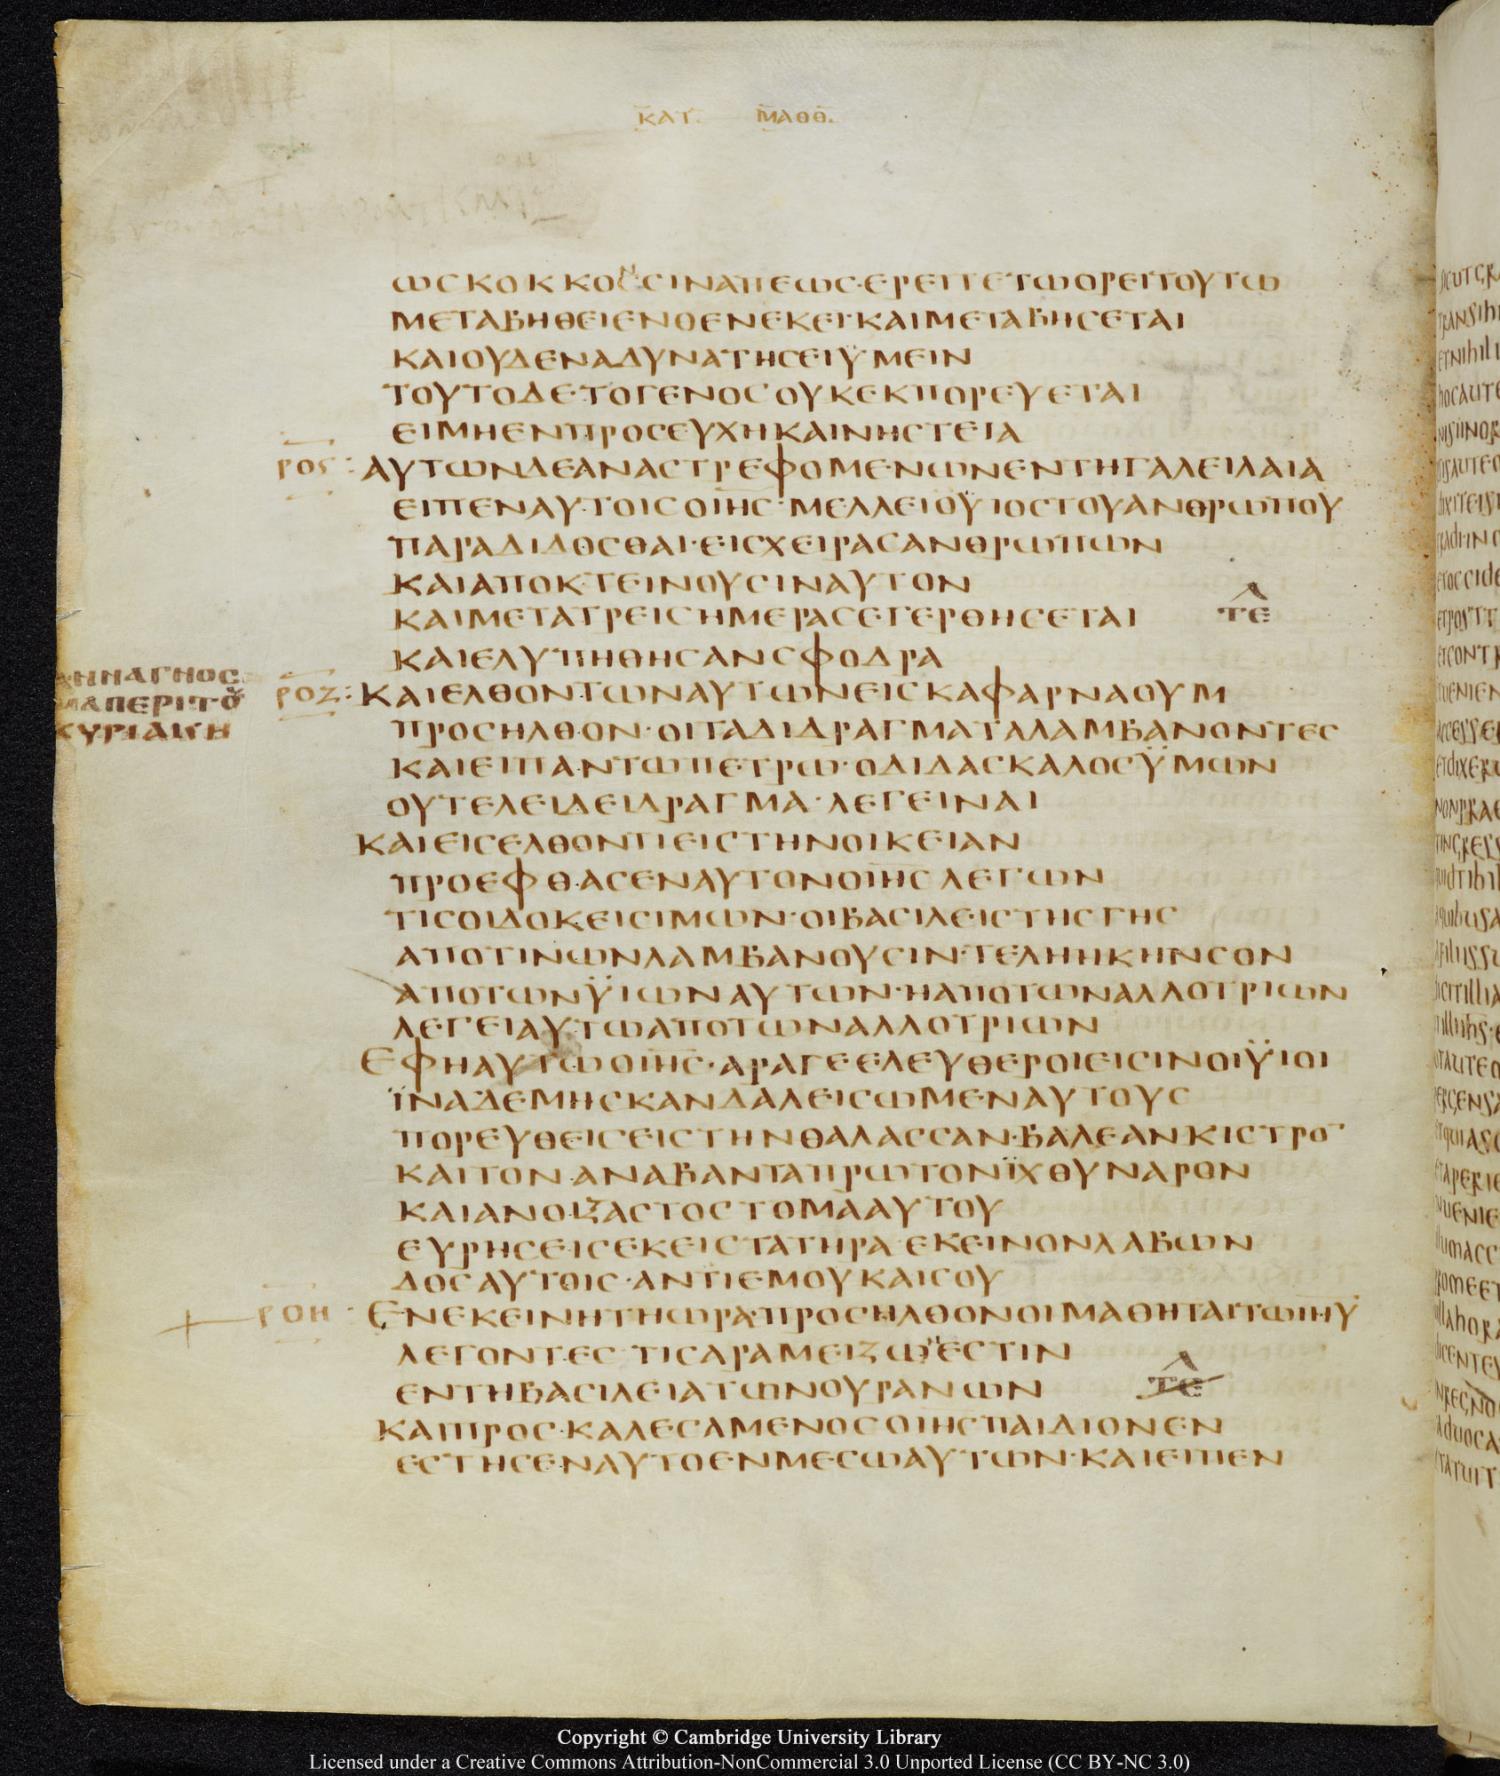 ΚΑΤ. ΜΑΘΘ.
ωϲκοκκοⲛ·ϲιναπεωϲ·ερειτετωορειτουτω
μεταβηθειενθενεκει·καιμεταβηϲεται
καιουδεναδυνατηϲειϋμειν
τουτοδε·τογενοϲουκεκπορευεται
ειμηενπροϲευχηκαινηϲτεια
ροϛ: αυτωνδεαναϲτρεφομενωνεντηγαλειλαια
ειπεναυτοιϲοιηϲ·μελλειοϋιοϲτουανθρωπου
παραδιδοϲθαι·ειϲχειραϲανθρωπων
καιαποκτεινουϲιναυτον
καιμετατρειϲημεραϲεγερθηϲεται τε
καιελυπηθηϲανϲφοδρα
ροζ: καιελθοντωναυτωνειϲκαφαρναουμ
προϲηλθον·οιταδιδραγματαλαμβανοντεϲ
καιειπαντωπετρω·οδιδαϲκαλοϲϋμων
ουτελειδειδραγμα·λεγειναι
καιειϲελθοντιειϲτηνοικειαν
προεφθαϲεναυτονοιηϲλεγων
τιϲοιδοκειϲιμων·οιβαϲιλειϲτηϲγηϲ
αποτινωνλαμβανουϲιν·τεληηκηνϲον
αποτωνϋιωναυτων·ηαποτωναλλοτριων
λεγειαυτωαποτωναλλοτριων
εφηαυτωοιηϲ·αραγεελευθεροιειϲινοιϋιοι
ϊναδεμηϲκανδαλειϲωμεναυτουϲ
πορευθειϲειϲτηνθαλαϲϲαν·βαλεανκιϲτρο¯
καιτοναναβανταπρωτονϊχθυναρον
καιανοιξαϲτοϲτομααυτου
ευρηϲειϲεκειϲτατηρα·εκεινονλαβων
δοϲαυτοιϲ·αντιεμουκαιϲου
ροη· ενεκεινητηωρα·προϲηλθονοιμαθηταιτωιηυ
λεγοντεϲ·τιϲαραμειζωⲛεϲτιν
εντηβαϲιλειατωνουρανων τε
καιπροϲκαλεϲαμενοϲοιηϲπαιδιονεν
εϲτηϲεναυτοενμεϲωαυτων·καιειπεν
ΑΝΝΑΓΝΟϹ
ΜΑΠΕΡΙΤΟ
ΚΥΡΙΑΚΗ
Copyright © Cambridge University Library
Licensed under a Creative Commons Attribution-NonCommercial 3.0 Unported License (CC BY-NC 3.0)